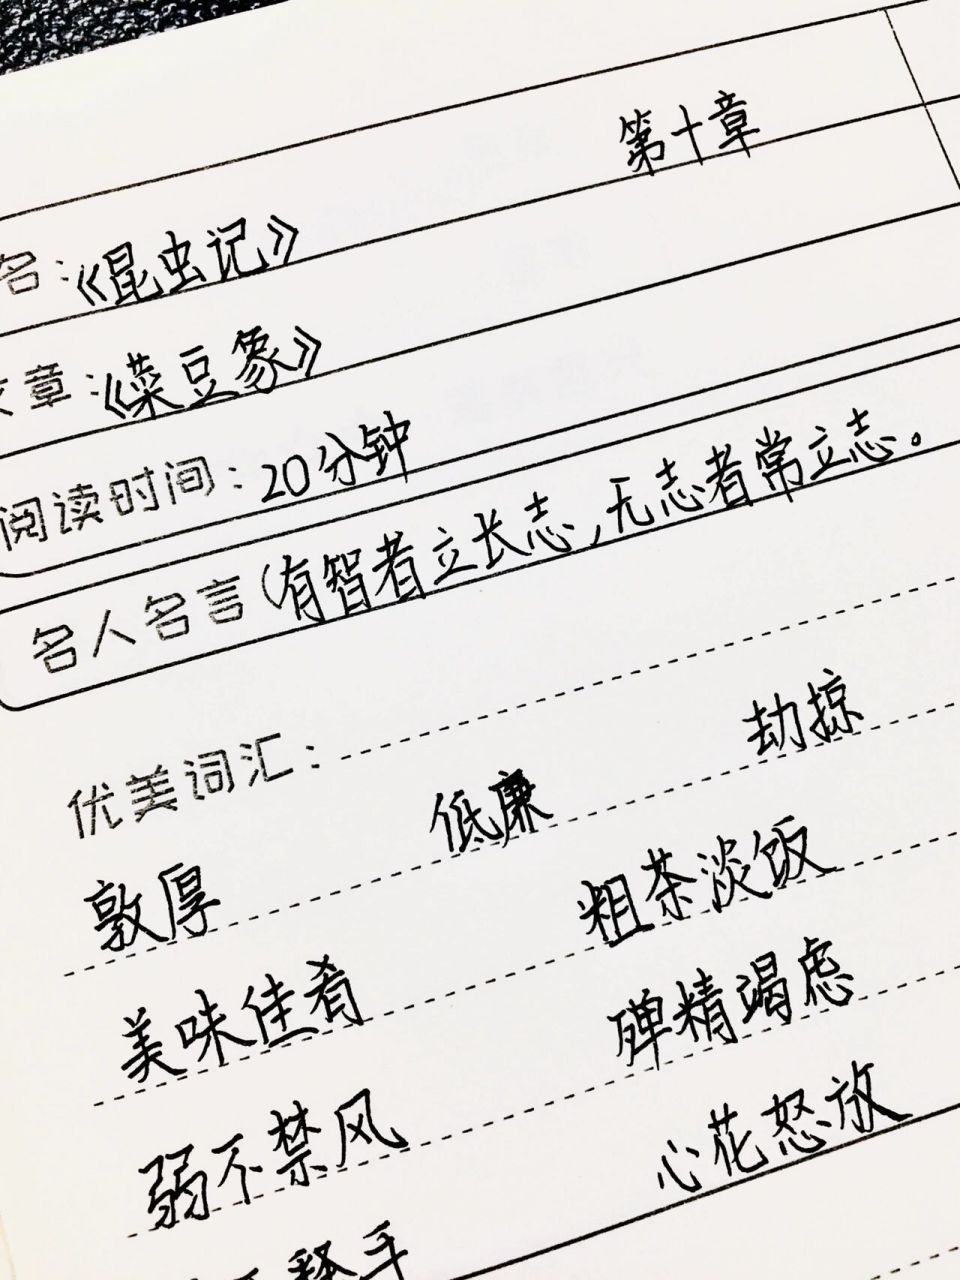 第十章
名：《昆虫记》
文章：《菜豆象》
阅读时间：20分钟
名人名言（有智者立长志，无志者常立志。
优美词汇：
敦厚 低廉 劫掠
美味佳肴 粗茶淡饭
弱不禁风 殚精竭虑
不释手 心花怒放